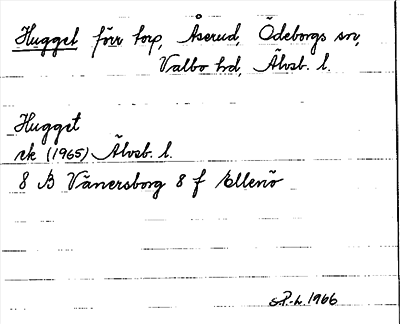 Hugget förr torp, Åserud, Ödeborgs sn,
Valbo hd, Älvsb. l.
Hugget
rk (1965) Älvsb. l.
8 B Vänersborg 8 f Ellenö
1966